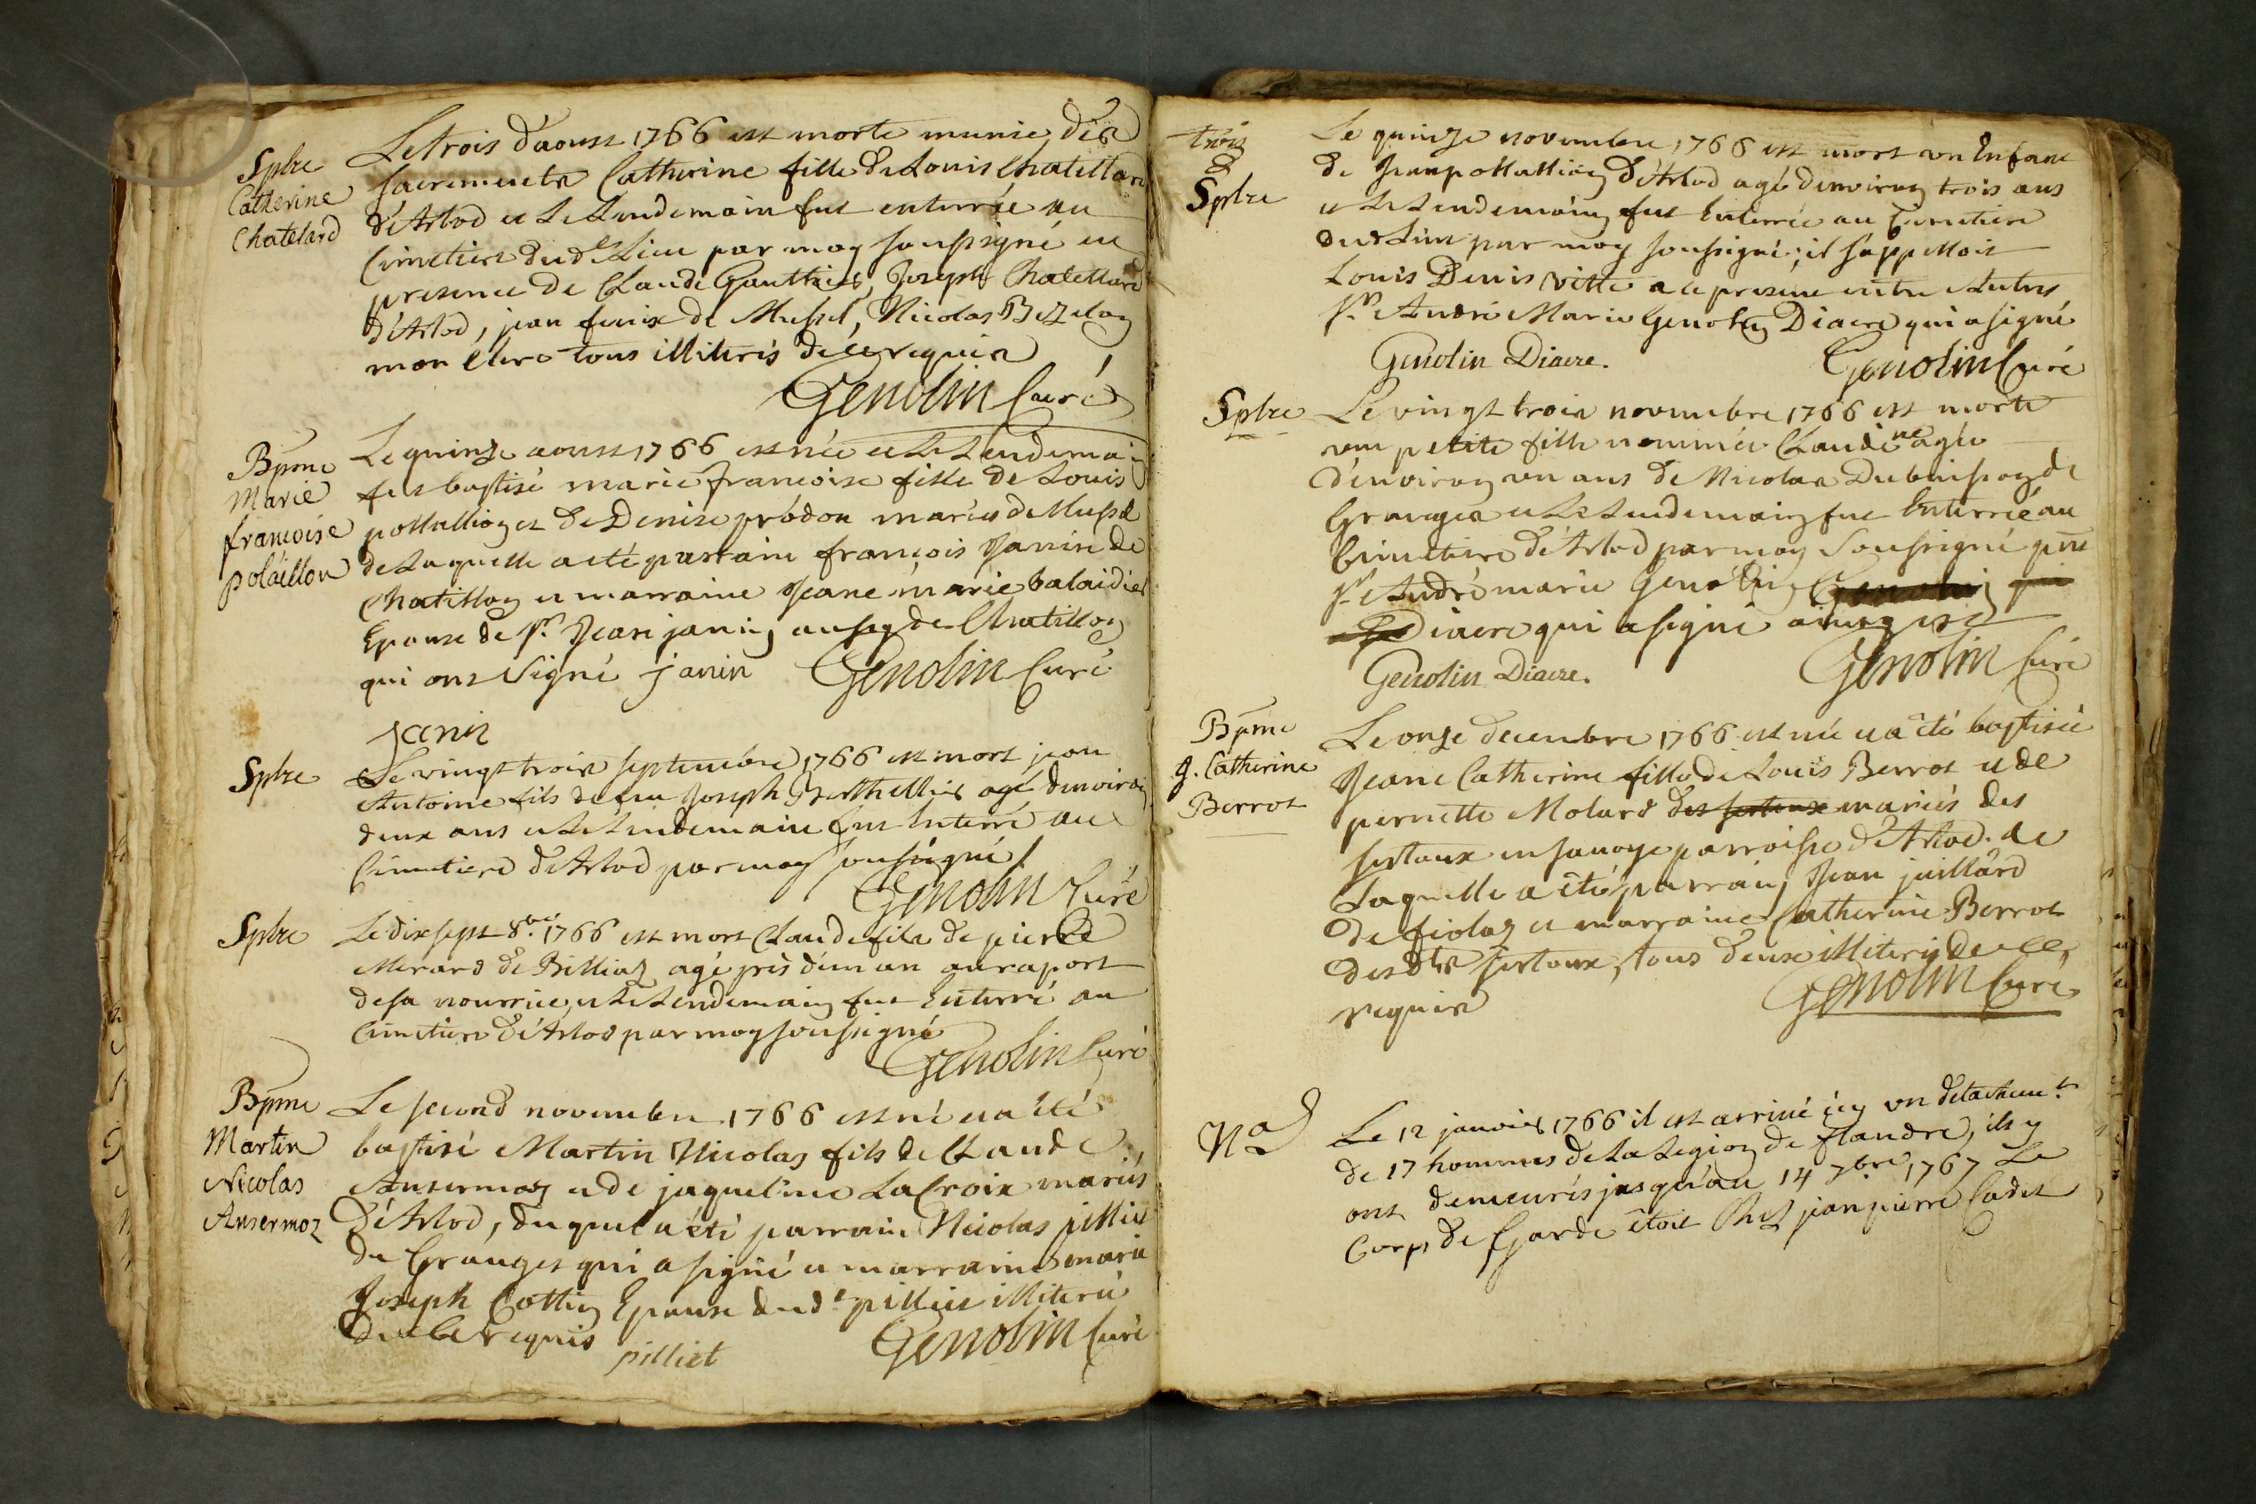 Splre
Catherine
Chatelard
Le trois d'aoust 1766 est morte munie des
sacrements Catherine fille de Louis Chatellard
d'Arlod et Le Lendemain fut enterrée au
Cimetiere dud.t Lieu par moy soussigné en
presence de Claude Gauthier, Joseph Chatellard
d'Arlod, jean de Mussel, Nicolas
mon clerc tous illiterés de ce requis
Genolin Curé
Bpme
Marie
françoise
polaillon
Le quinze aoust 1766 est née et Le Lendemain
fut baptisé marie françoise fille de Louis
pollallion et de Denise pródon mariés de Mussel
de Laquelle a eté parrain françois Janin de
Chatillon et marraine Jeane marie balaidier
Epouse de Sr. Jean janin aussy de Chatillon
qui ont Signé janin Genolin Curé
janin
Splre
Le vingt trois septembre 1766 est mort jean
Antoine fils de feu Joseph Berthellier agé denviron
deux ans et Le Lendemain fut Enterré au
Cimetiere d'Arlod par moy soussigné
Genolin Curé
Splre
Le dix sept 8.bre 1766 est mort Claude fils de pierre
Merard de Billiaz agé près d'un an au raport
de sa nourrice, et Le Lendemain fut Enterré au
Cimetiere d'Arlod par moy soussigné
Genolin Curé
Bpme
Martin
Nicolas
Ansermoz
Le second novembre 1766 est né et a été
baptisé Martin Nicolas fils de Claude
Ansermoz et de jaqueline La Croix mariés
D'Arlod, du quel a été parrain Nicolas pilliet
de Granges qui a signé et marraine marie
Joseph Cottin Epouse dud.t pilliet illiterée
de ce requis
pilliet Genolin Curé
trois
Splre
Le quinze novembre 1766 est mort un Enfant
de Jean pollallion d'Arlod agé denviron trois ans
et Le Lendemain fut Enterrée au Cimetiere
dud Lieu par moy soussigné; il s'appelloit
Louis Denis Vitte a ce present entre Autres
Sr. André Marie Genolin Diacre qui a signé
Genolin Diacre. Genolin Curé
Splre
Le vingt trois novembre 1766 est morte
une petite fille nommée Claudine agée
d'environ un ans de Nicolas Dubuisson de
Granges et Le Lendemain fut Enterrée au
Cimetiere d'Arlod par moy Soussigné pnt
Sr. André marie Genolin
Diacre qui a signé
Genolin Diacre. Genolin Curé
Bpme
J. Catherine
Berrot
Le onze decembre 1766 est née et a été baptisée
Jeane Catherine fille de Louis Berrot et de
pernette Molard des sertoux mariés des
sertoux en savoye parroisse d'Arlod. de
Laquelle a été parrain Jean juillard
de fiolaz et marraine Catherine Berrot
des dts sertoux, tous deux illiterés de ce
requis Genolin Curé
Na
Le 12 janvier 1766 il est arrivé icy un detachemt
de 17 hommes de La Legion de flandre, ils y
ont demeurés jusqu'au 14 7.bre 1767 Le
Corps de Garde étoit Chez jean pierre Cadet